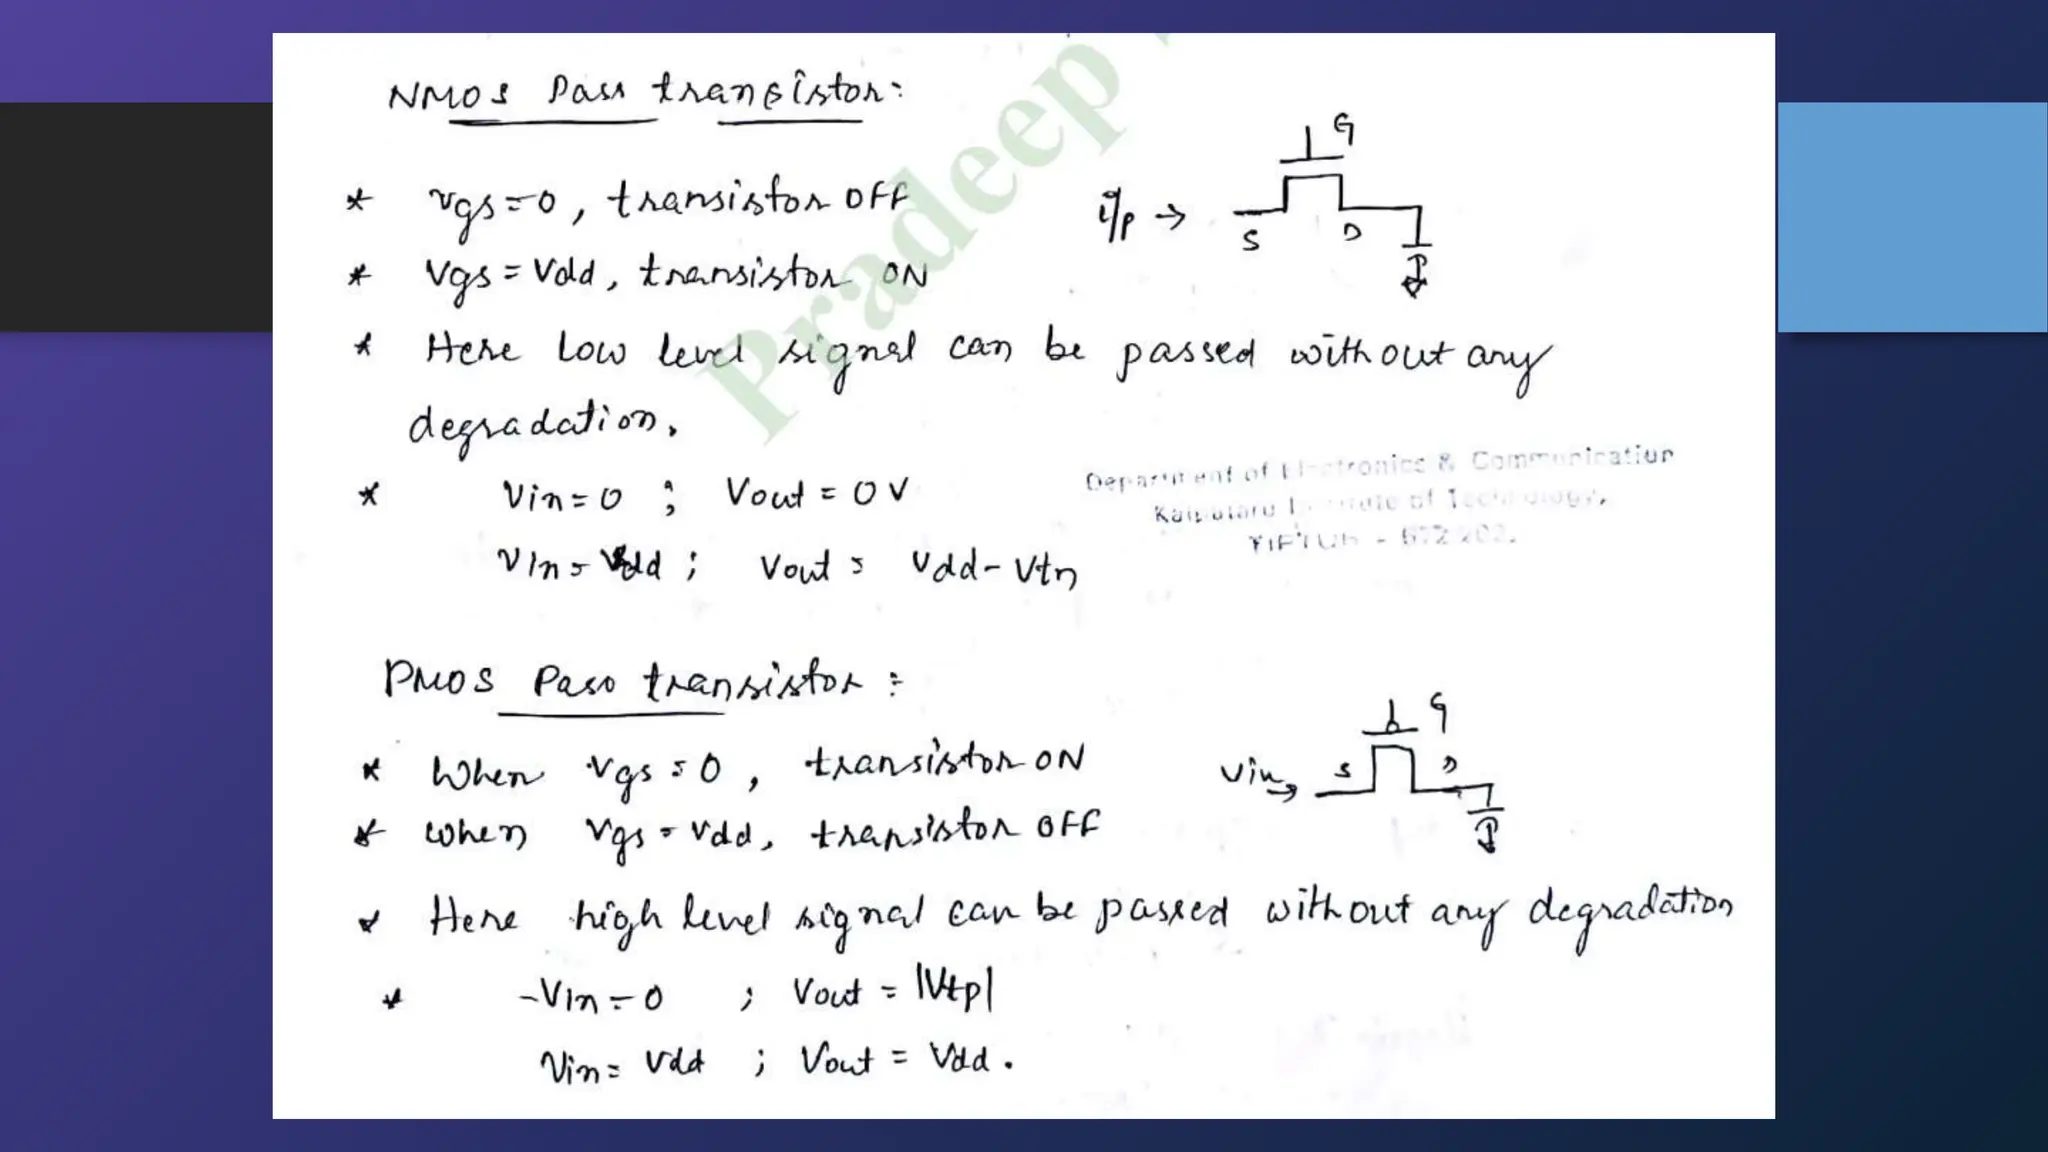 NMOS Pass transistor:
G
* Vgs=0, transistor OFF
i/p →
S
D
* Vgs = Vdd, transistor ON
* Here Low level signal can be passed without any
degradation.
* Vin=0 ; Vout = 0 V
Vin = Vdd ; Vout = Vdd - Vtn
Department of Electronics & Communication
Institute of Technology,
Pradeep
PMOS Pass transistor :
G
* When Vgs = 0, transistor ON
Vin →
S
D
* When Vgs = Vdd, transistor OFF
* Here high level signal can be passed without any degradation
* Vin = 0 ; Vout = |Vtp|
Vin = Vdd ; Vout = Vdd.